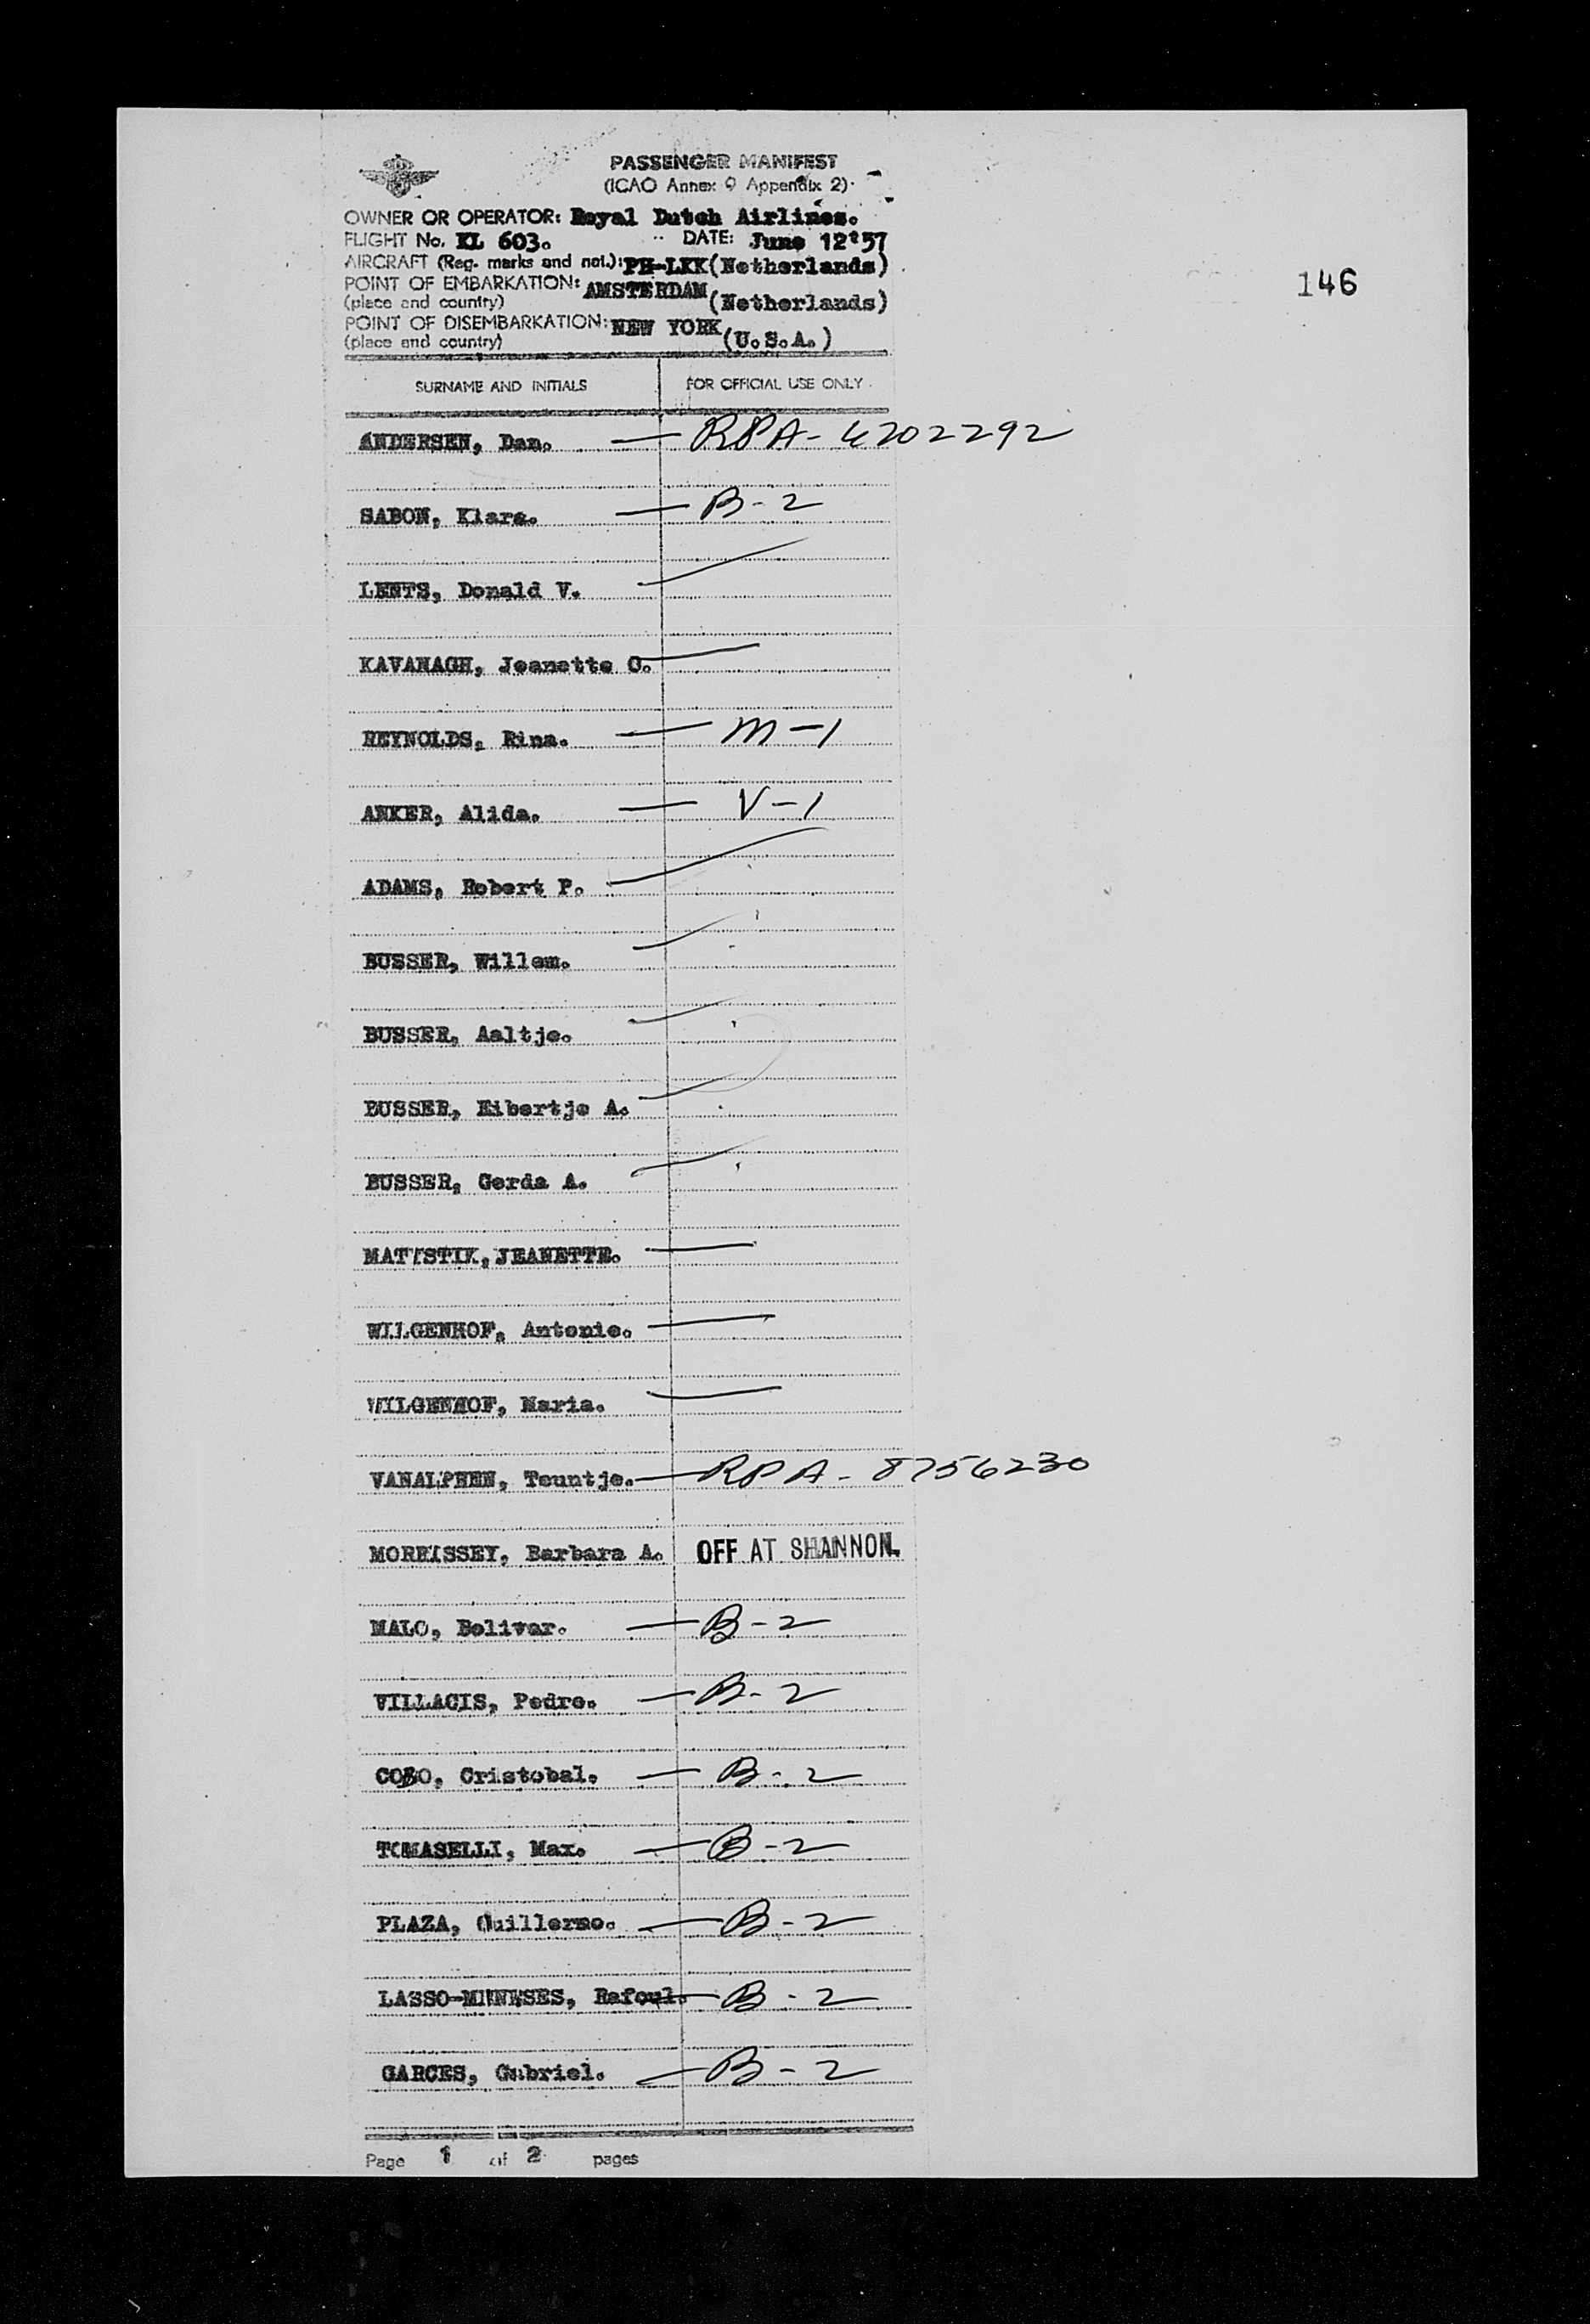 PASSENGER MANIFEST
(ICAO Annex 9 Appendix 2)
OWNER OR OPERATOR: Royal Dutch Airlines.
FLIGHT No. KL 603. DATE: June 12'57
AIRCRAFT (Reg. marks and nat.): PH-LKK (Netherlands)
POINT OF EMBARKATION: AMSTERDAM (Netherlands)
(place and country)
146
POINT OF DISEMBARKATION: NEW YORK (U.S.A.)
(place and country)
SURNAME AND INITIALS FOR OFFICIAL USE ONLY
ANDERSEN, Dan. — RPA - 6202292
SABON, Klara. — B-2
LENTS, Donald V.
KAVANAGH, Jeanette C.
REYNOLDS, Rina. — M-1
ANKER, Alida. — V-1
ADAMS, Robert P.
BUSSER, Willem.
BUSSER, Aaltje.
BUSSER, Eibertje A.
BUSSER, Gerda A.
MATYSTIK, JEANETTE.
WILGENHOF, Antonie.
WILGENHOF, Maria.
VANALPHEN, Teuntje. — RPA - 8756230
MORRISSEY, Barbara A. OFF AT SHANNON.
MALO, Bolivar. — B-2
VILLACIS, Pedro. — B-2
COBO, Cristobal. — B-2
TOMASELLI, Max. — B-2
PLAZA, Guillermo. — B-2
LASSO-MENESES, Rafoul. — B-2
GARCES, Gabriel. — B-2
Page 1 of 2 pages